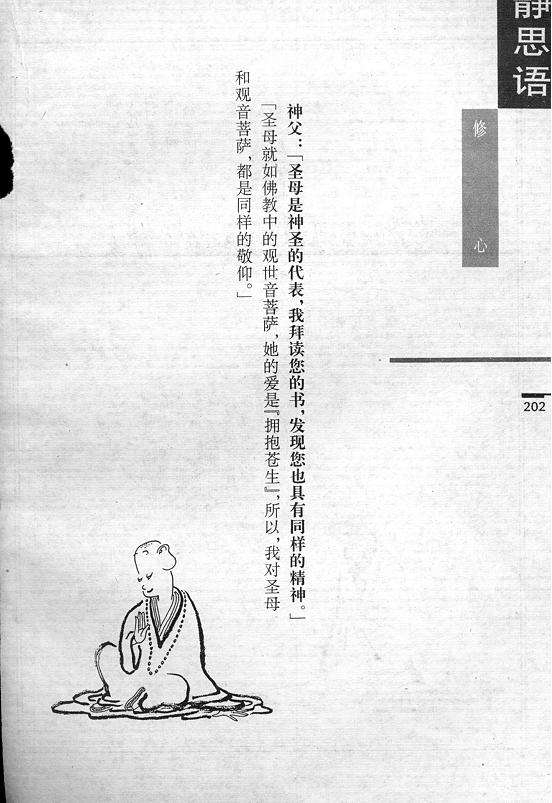 静思语
修心
202
神父：「圣母是神圣的代表，我拜读您的书，发现您也具有同样的精神。」
「圣母就如佛教中的观世音菩萨，她的爱是『拥抱苍生』，所以，我对圣母
和观音菩萨，都是同样的敬仰。」